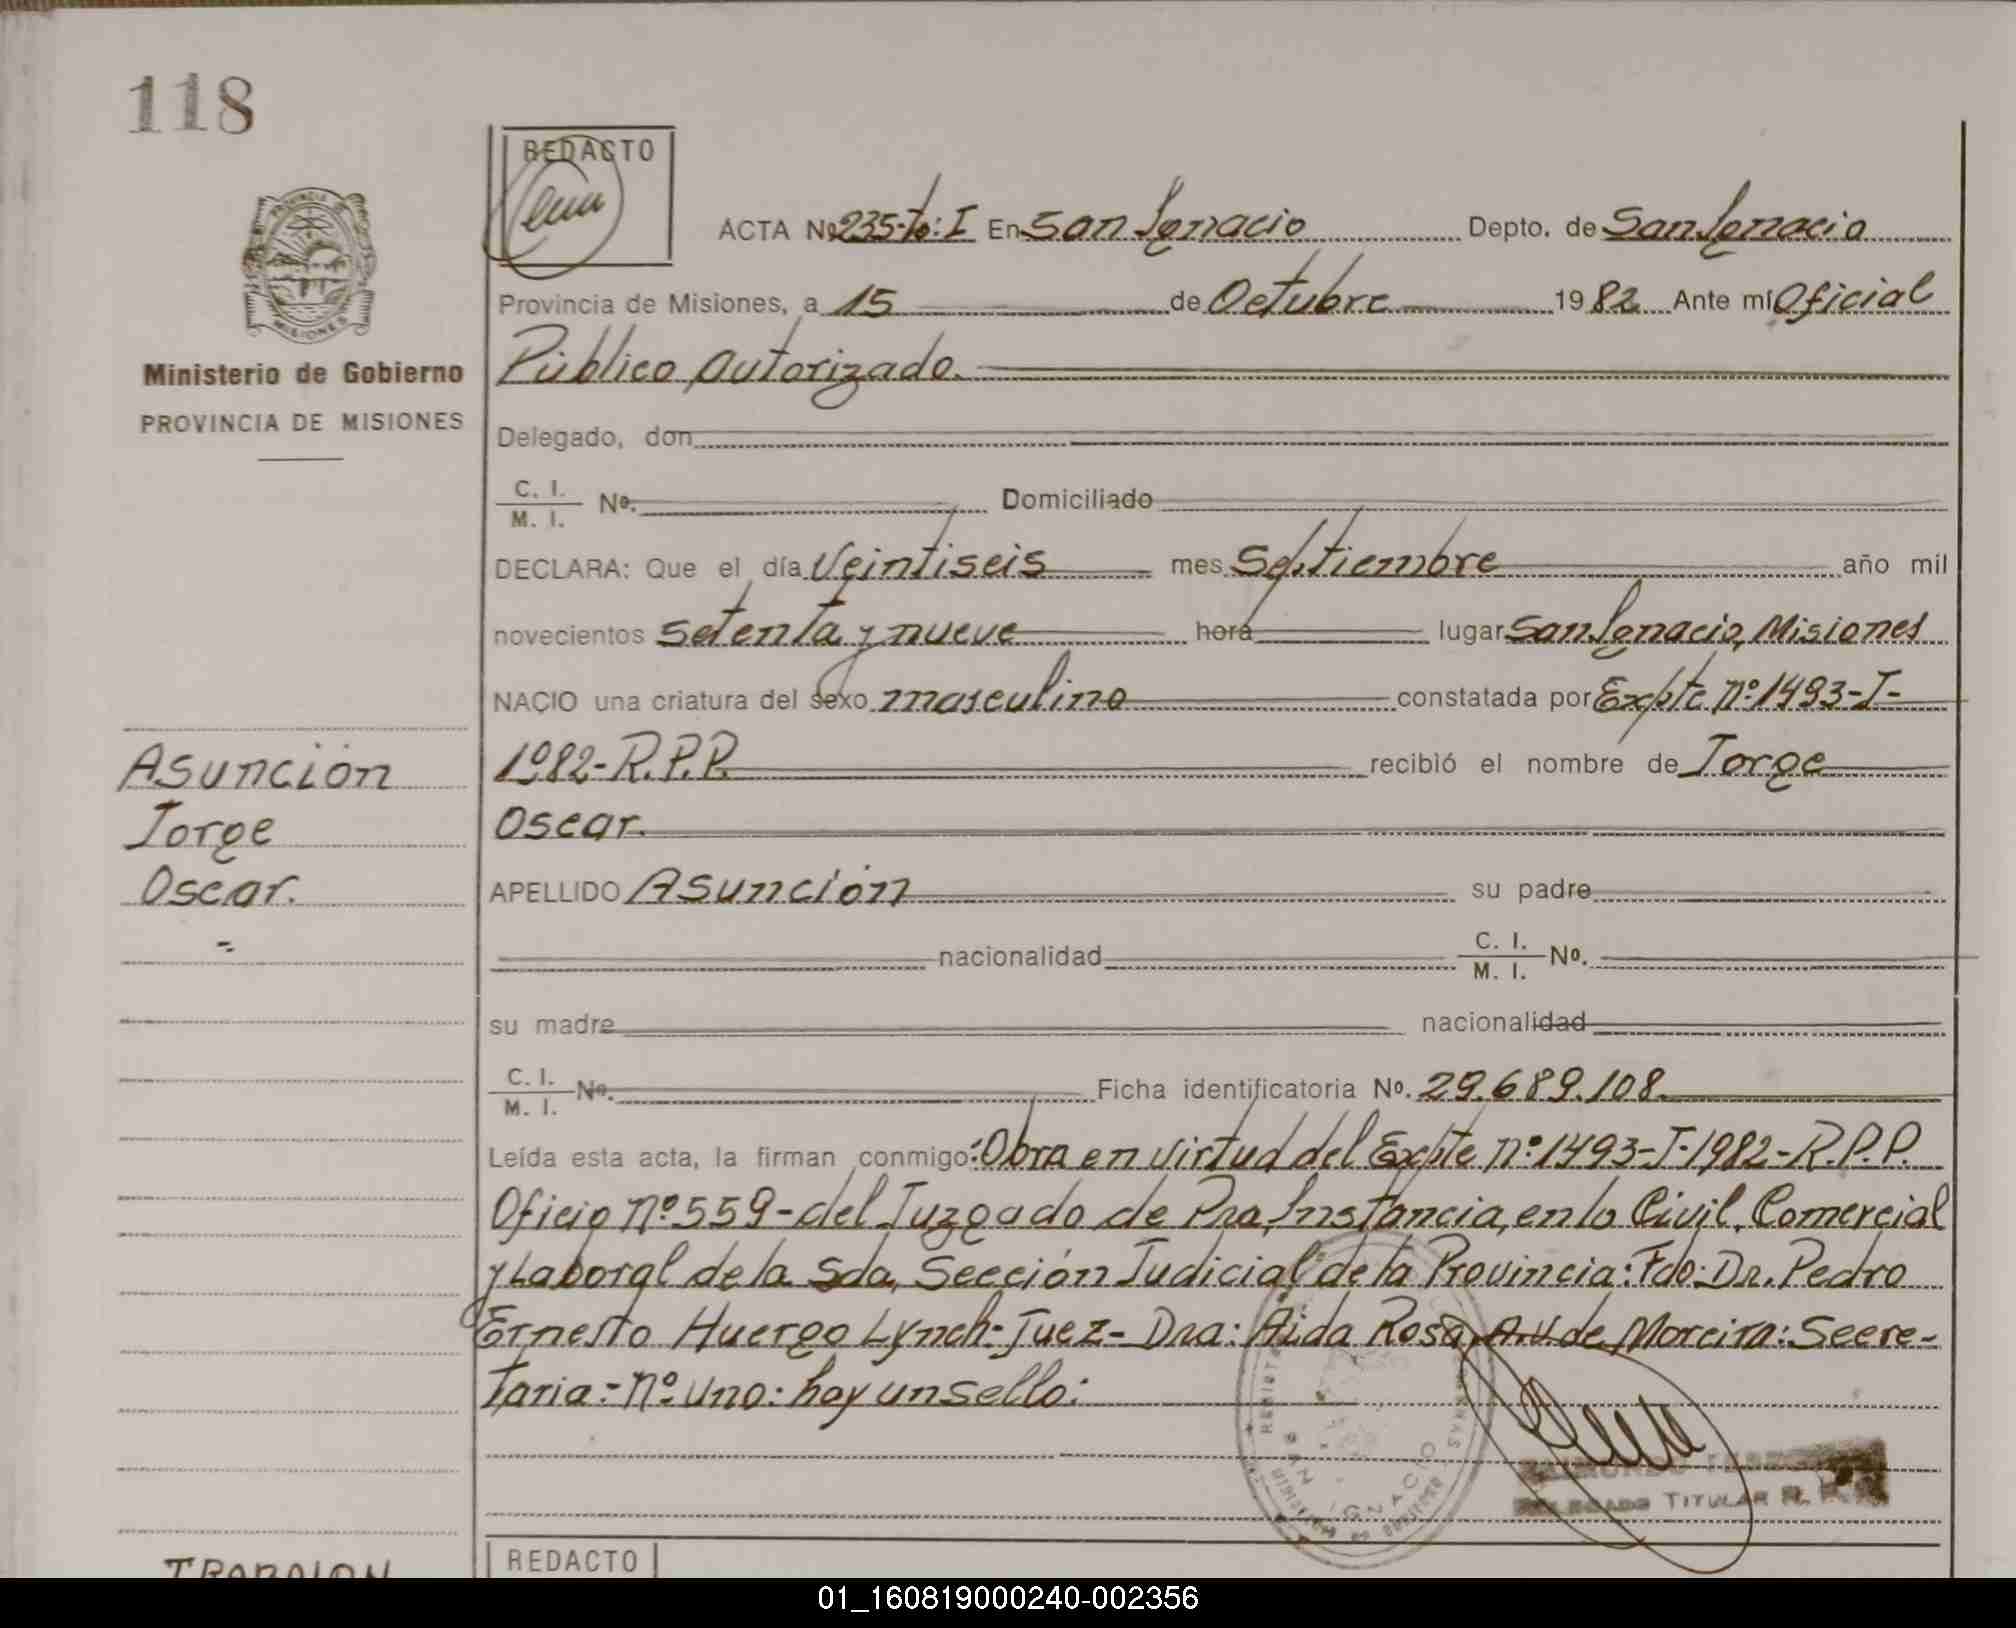 118
REDACTO
ACTA Nº 235-to: I En San Ignacio Depto. de San Ignacio
Provincia de Misiones, a 15 de Octubre 1982 Ante mí Oficial
Público autorizado.
Ministerio de Gobierno
PROVINCIA DE MISIONES
Delegado, don
C. I.
M. I. Nº. Domiciliado
DECLARA: Que el día Veintiseis mes Septiembre año mil
novecientos setenta y nueve hora lugar San Ignacio, Misiones
NACIO una criatura del sexo masculino constatada por Expte nº 1493-J-
1982-R.P.P. recibió el nombre de Jorge
Oscar.
Asunción
Jorge
Oscar.
APELLIDO Asunción su padre
nacionalidad C. I.
M. I. Nº.
su madre nacionalidad
C. I.
M. I. Nº. Ficha identificatoria Nº. 29.689.108
Leída esta acta, la firman conmigo: Obra en virtud del Expte nº 1493-J-1982-R.P.P.
Oficio nº 559-del Juzgado de Pra, Instancia, en lo Civil, Comercial
y Laboral de la Sda, Sección Judicial de la Provincia: Fdo: Dr. Pedro
Ernesto Huergo Lynch-Juez- Dra: Aida Rosa A.V. de Moreira: Secre-
taria:- nº uno: hay un sello:
SAN IGNACIO
RAIMUNDO
DELEGADO TITULAR R. P.
REDACTO
01_160819000240-002356